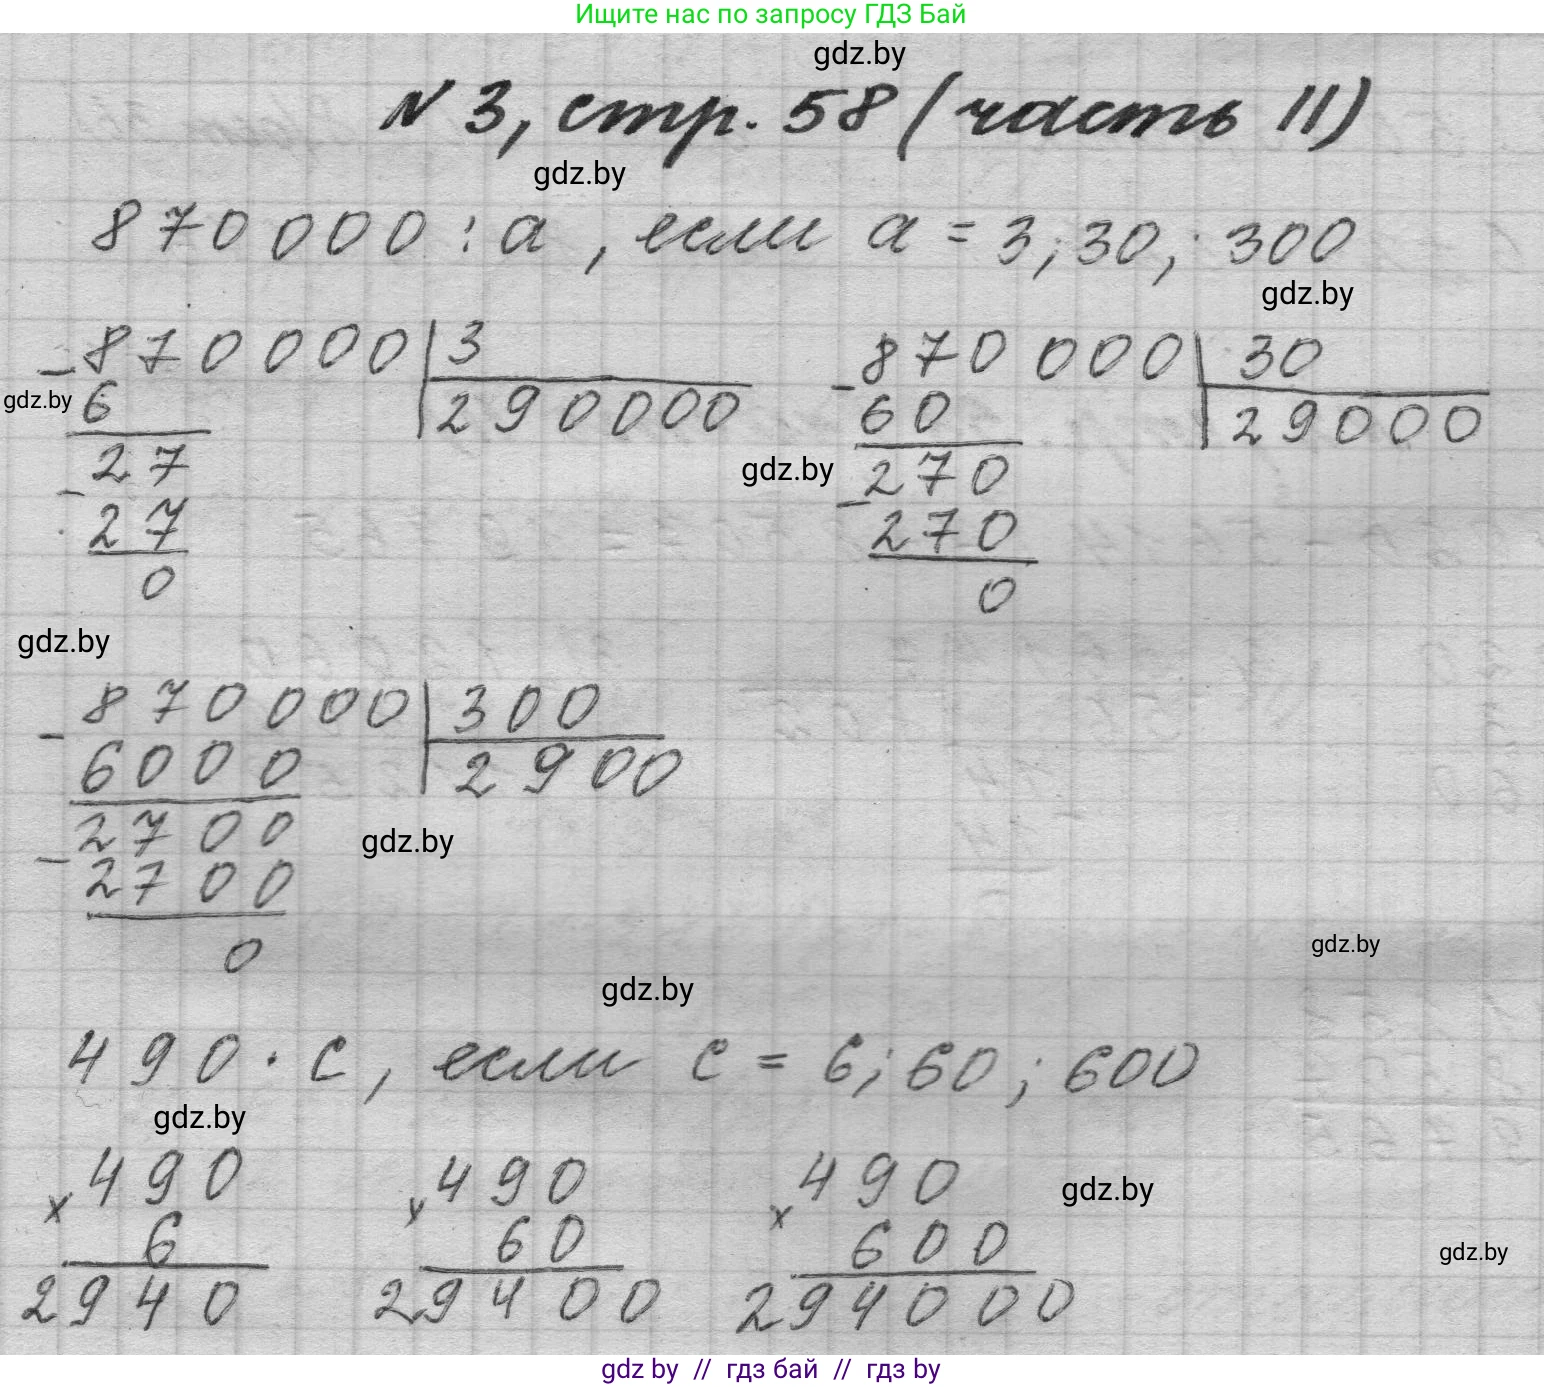 Ищите нас по запросу ГДЗ Бай
gdz.by
N 3, стр. 58 (часть II)
gdz.by
870000 : a , если a = 3; 30; 300
gdz.by
- 870000 | 3
6 | 290000
gdz.by
27
- 27
0
- 870 000 | 30
60 | 29000
gdz.by
270
- 270
0
gdz.by
- 870000 | 300
6000 | 2900
2700
gdz.by
- 2700
0
gdz.by
gdz.by
490 · c, если c = 6; 60; 600
gdz.by
x 490
6
2940
x 490
60
29400
x 490
600
294000
gdz.by
gdz.by
gdz by // гдз бай // гдз by